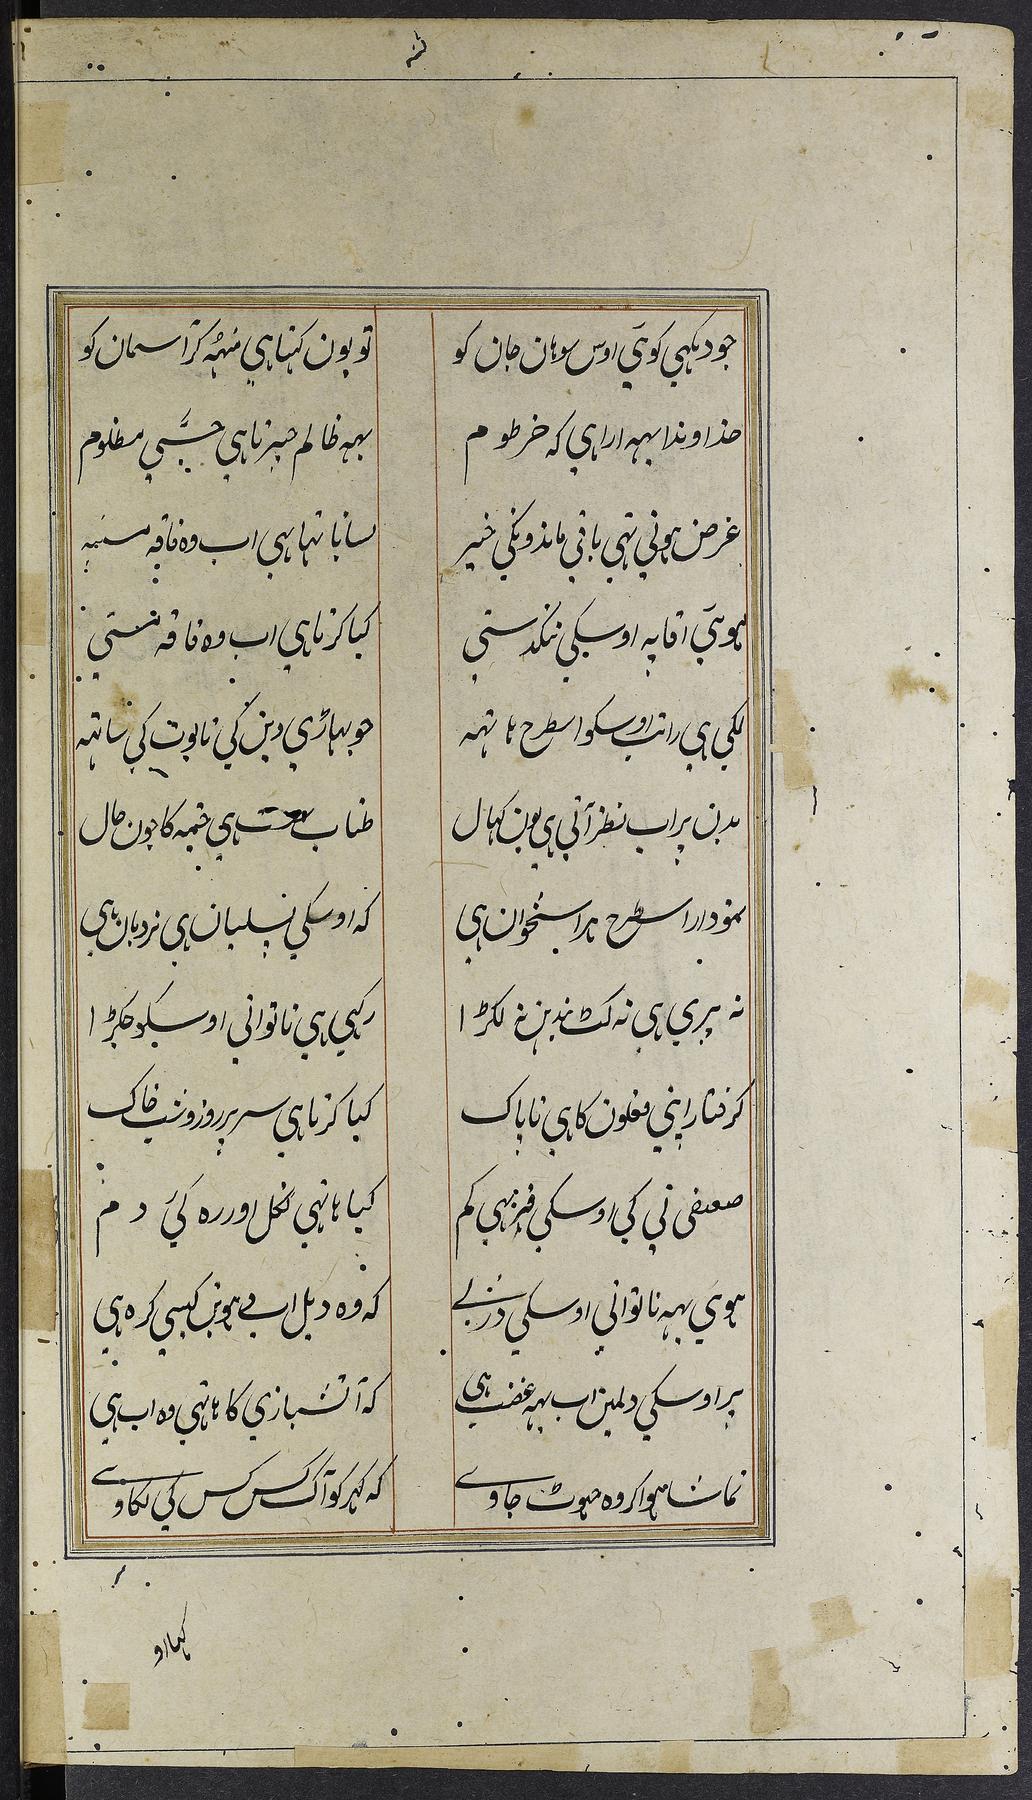 جو دیکهی کوئی اوس سوہان جان کو
تو یون کہتا ہی منہہ کر آسمان کو
خداوندا یہہ ارا ہی کہ خرطوم
یہہ ظالم چیرتا ہی جسی مظلوم
غرض ہونی تہی باقی ماندونکی خیر
ہوئی آقا پہ اوسکی تنگدستی
کیا کرتا ہی اب وہ فاقہ مستی
لگی ہی راتب اوسکو اسطرح ہاتهہ
جو بہاڑی دین کی تابوت کی ساتهہ
بدن پر اب نظر آتی ہی یون کہال
طناب سست ہی خیمہ کا جون حال
نمودار اسطرح ہر استخوان ہی
کہ اوسکی پسلیان ہی نردبان ہی
نہ بیری ہی نہ کٹ بندہن نہ لکڑا
رکہی ہی ناتوانی اوسکو جکڑا
گرفتار اپنی فعلون کا ہی ناپاک
کیا کرتا ہی سر پر روز و شب خاک
ضعیفی نی کی اوسکی فربہی کم
گیا ہاتهی نکل اور رہ گئی دم
ہوئی یہہ ناتوانی اوسکی درپی
کہ وہ دبل اب
پر اوسکی دلمین اب یہہ غضب ہی
کہ آتشبازی کا ہاتهی وہ اب ہی
تماشا ہو اگر وہ چہوٹ جاوے
کہ گہر کو آگ کس کس کی لگاوے